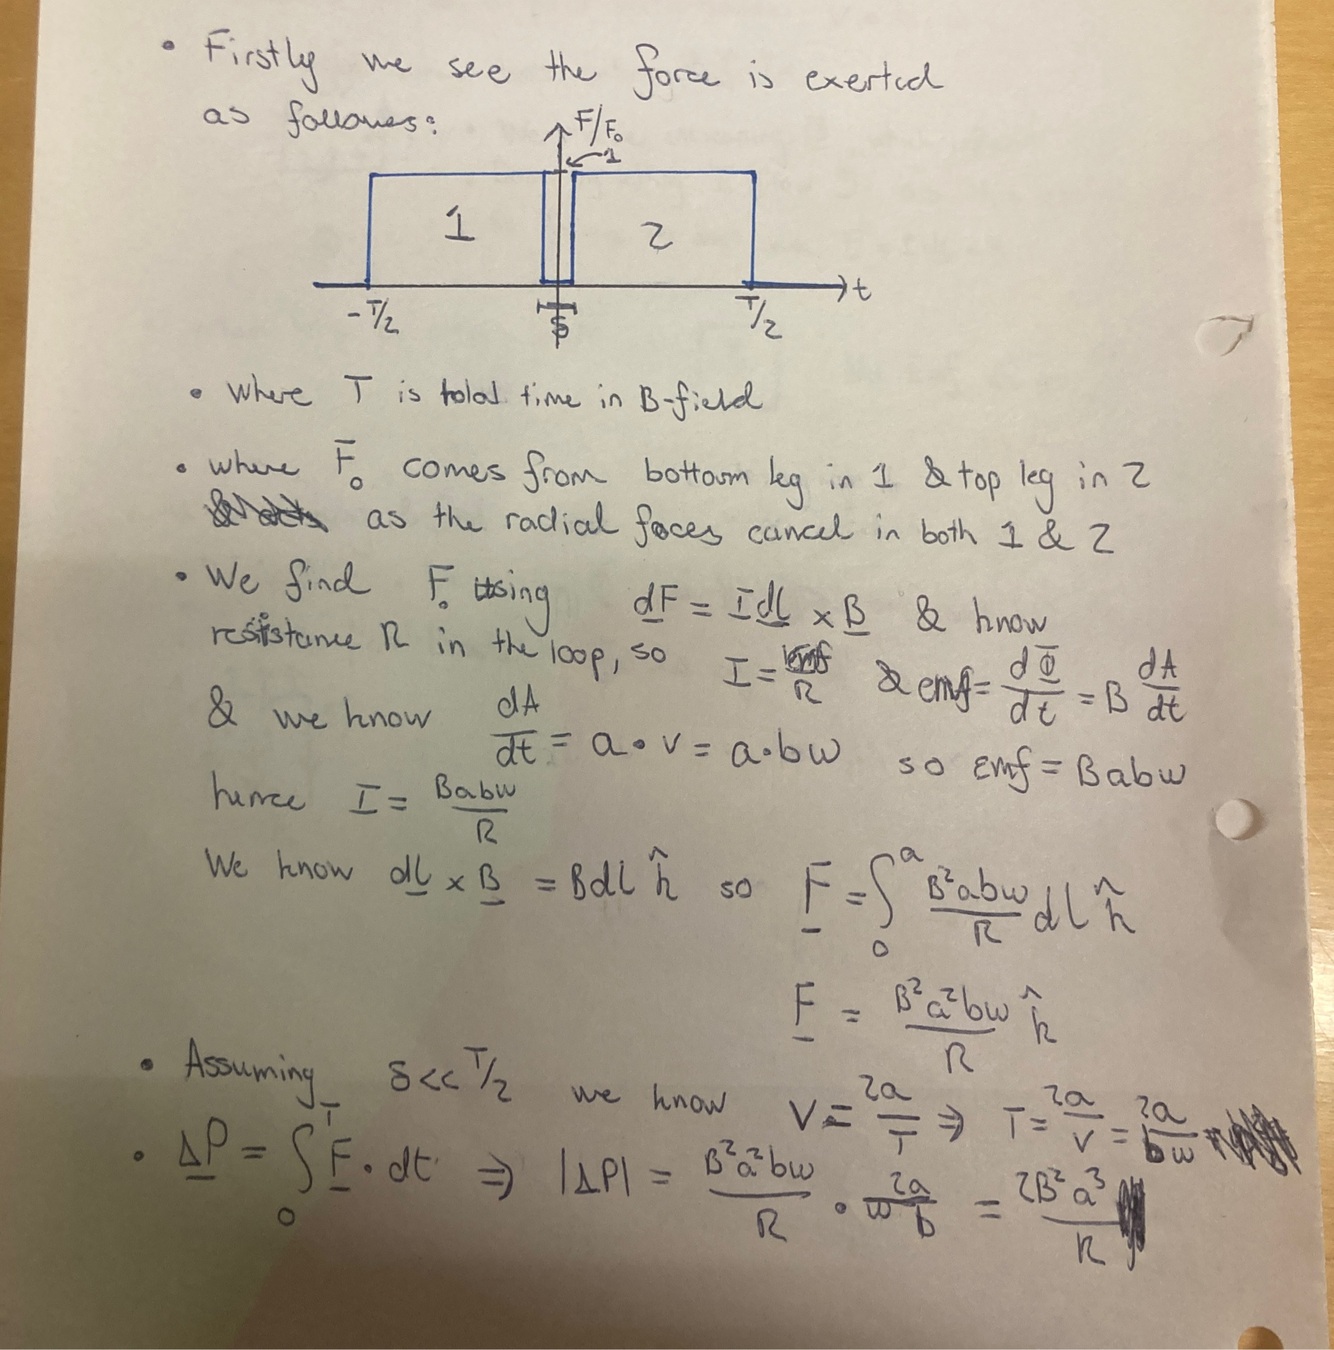 • Firstly we see the force is exerted
as follows:
F/F₀
1
1
2
t
-T/2
δ
T/2
• where T is total time in B-field
• where F₀ comes from bottom leg in 1 & top leg in 2
as the radial forces cancel in both 1 & 2
• We find F₀ using dF = I dl × B & know
resistance R in the loop, so I = emf/R & emf = dΦ/dt = B dA/dt
& we know dA/dt = a · v = a·bω so emf = Babω
hence I = Babω/R
We know dl × B = Bdl k̂ so F = ∫₀ᵃ B²abω/R dl k̂
F = B²a²bω/R k̂
• Assuming δ << T/2 we know v = 2a/T ⇒ T = 2a/v = 2a/bω
• ΔP = ∫₀ᵀ F · dt ⇒ |ΔP| = B²a²bω/R · 2a/ωb = 2B²a³/R